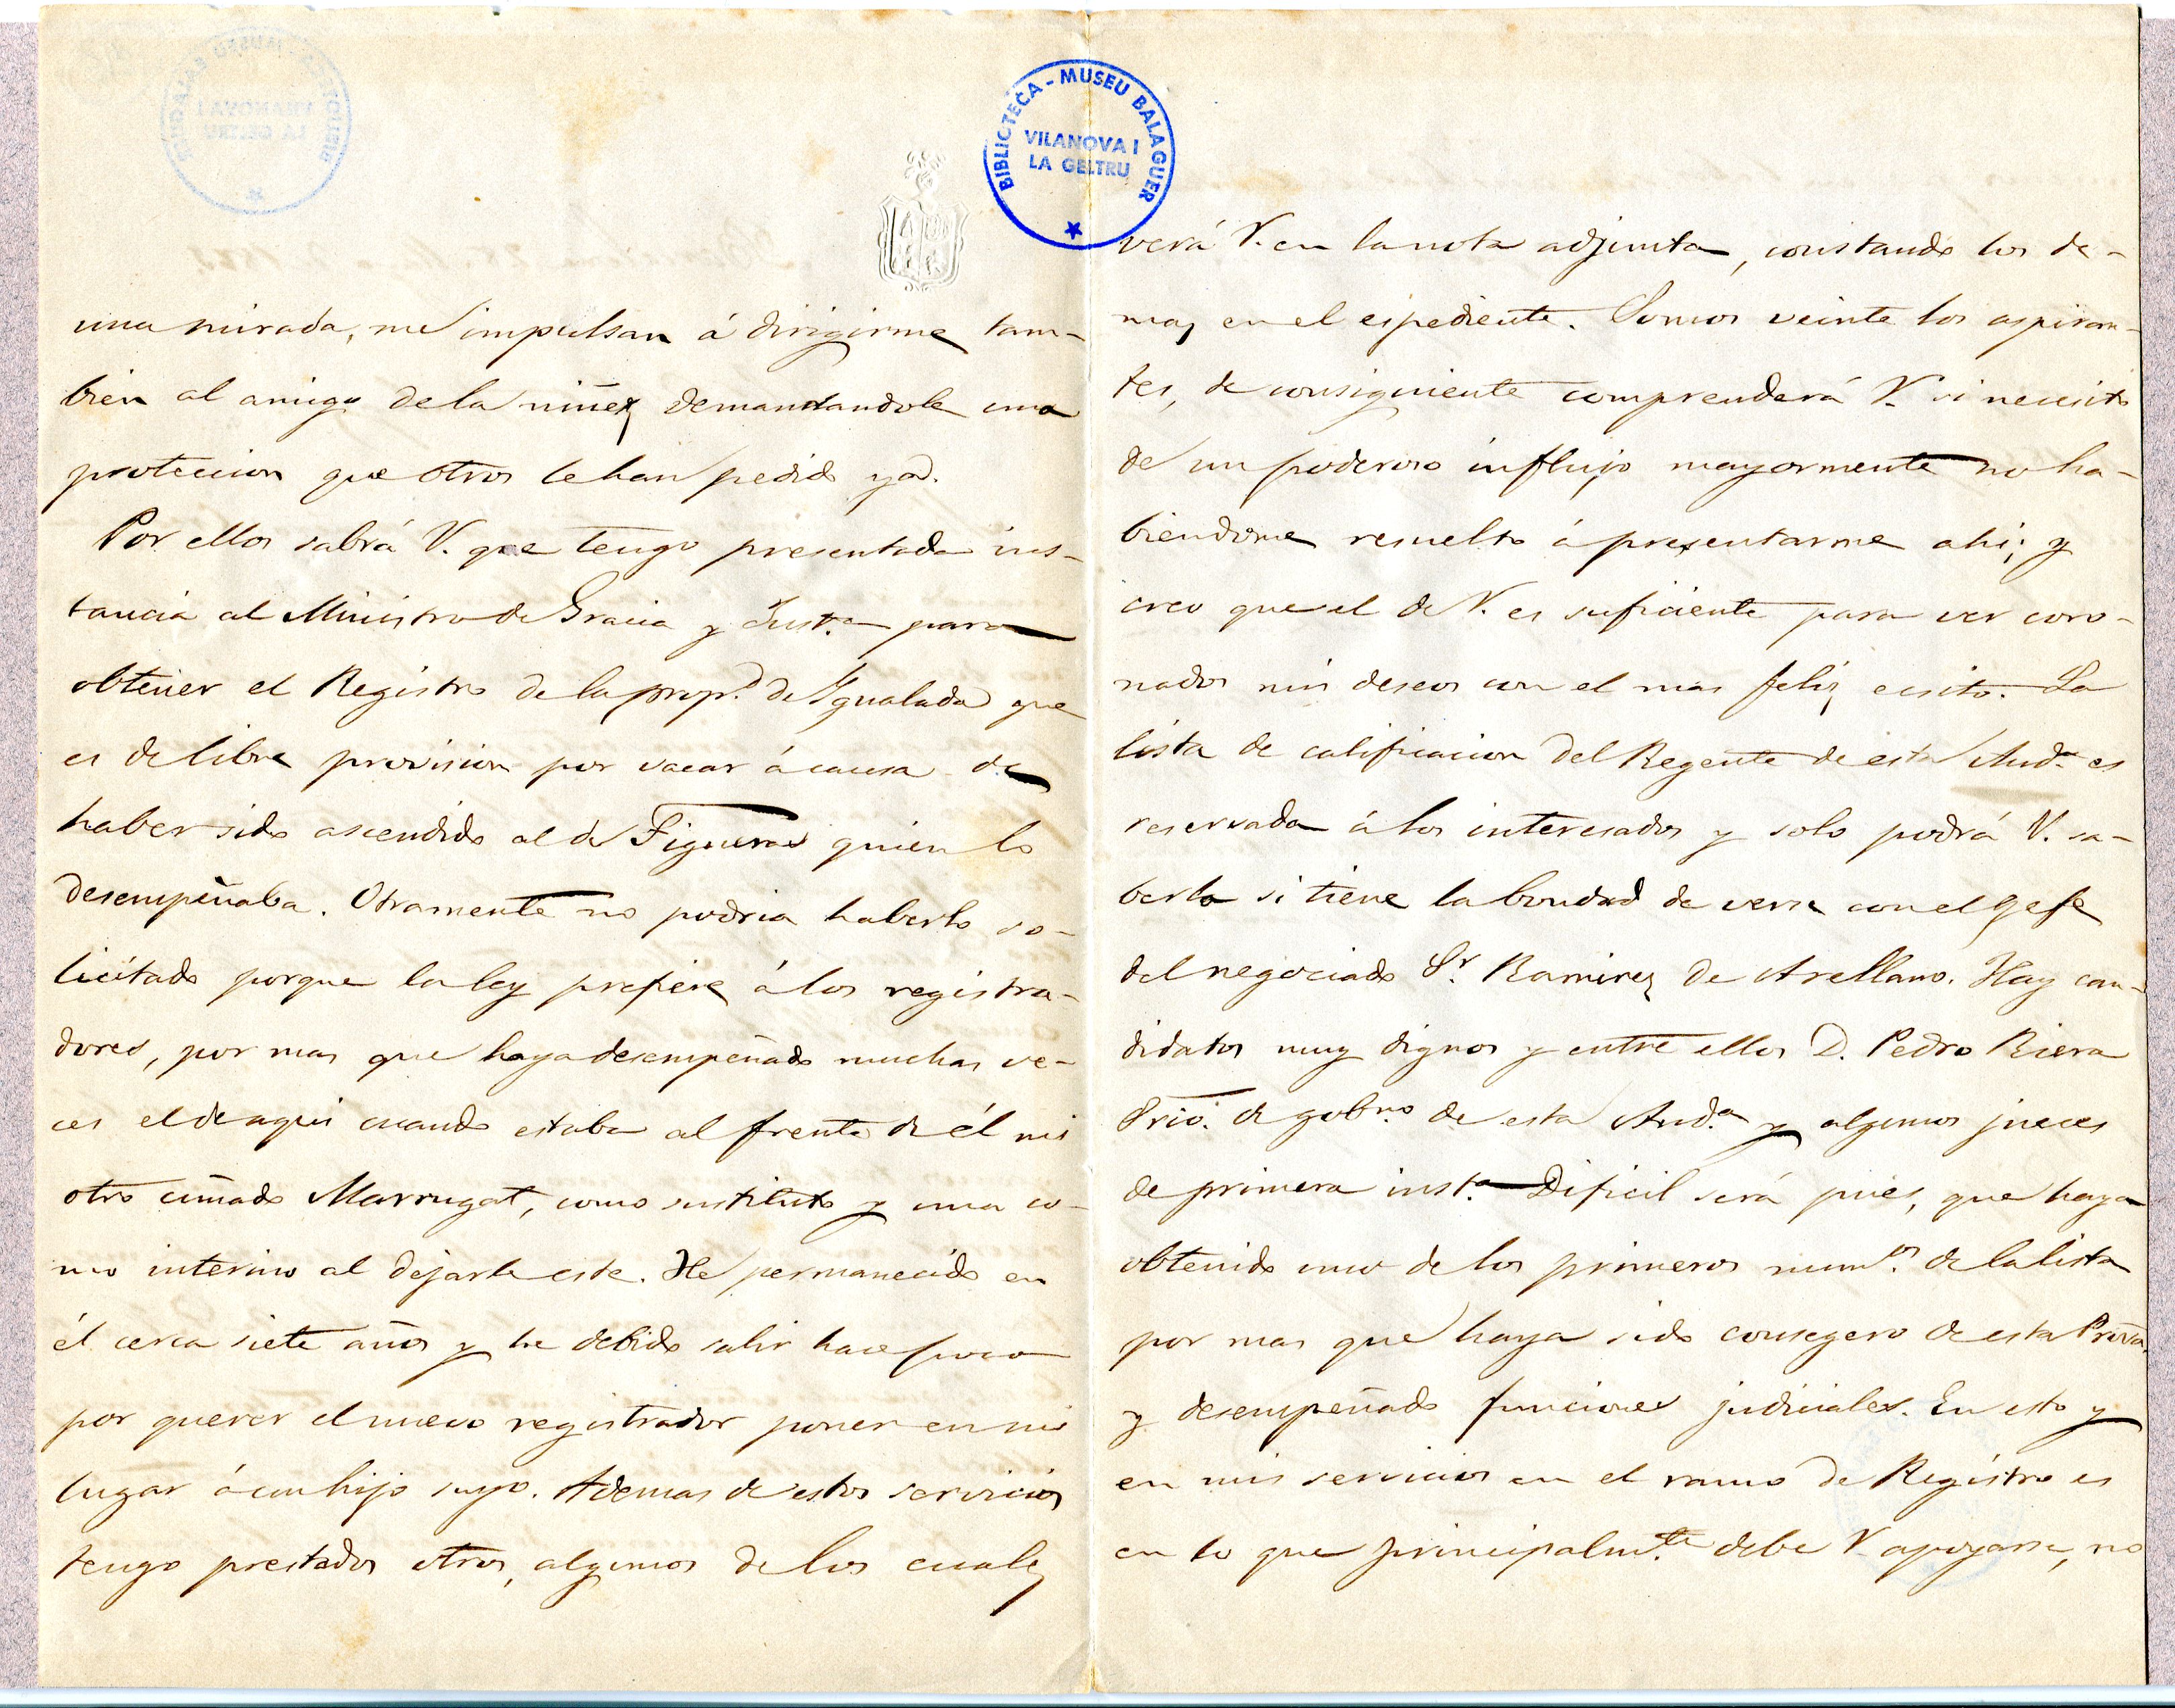 BIBLIOTECA - MUSEU BALAGUER
VILANOVA I
LA GELTRU
una mirada, me impulsan á dirigirme tam-
bien al amigo de la niñez demandandole una
proteccion que otros le han pedido ya.
Por ellos sabrá V. que tengo presentada ins-
tancia al Ministro de Gracia y Just.ª para
obtener el Registro de la prop.d de Ygualada que
es de libre provision por vacar á causa de
haber sido ascendido al de Figueras quien lo
desempeñaba. Otramente no podria haberlo so-
licitado porque la ley prefiere á los registra-
dores, por mas que haya desempeñado muchas ve-
ces el de aqui cuando estaba al frente de él mi
otro cuñado Marrugat, como sustituto y una co-
mo interino al dejarle este. He permanecido en
él cerca siete años y he debido salir hace poco
por querer el nuevo registrador poner en mi
lugar á un hijo suyo. Ademas de estos servicios
tengo prestados otros, algunos de los cuales
verá V. en la nota adjunta, constando los de-
mas en el espediente. Somos veinte los aspiran-
tes, de consiguiente comprenderá V. si necesito
de un poderoso influjo mayormente no ha-
biendome resuelto á presentarme ahi; y
creo que el de V. es suficiente para ver coro-
nados mis deseos con el mas feliz ecsito. La
lista de calificacion del Regente de esta Aud.ª es
reservada á los interesados y solo podrá V. sa-
berla si tiene la bondad de verse con el Gefe
del negociado S.r Ramirez de Arellano. Hay can-
didatos muy dignos y entre ellos D. Pedro Riera
Srio. de gob.no de esta Aud.ª y algunos jueces
de primera inst.ª Dificil será pues, que haya
obtenido uno de los primeros num.os de la lista
por mas que haya sido consegero de esta Prov.a
y desempeñado funciones judiciales. En esto y
en mis servicios en el ramo de Registro es
en lo que principalm.te debe V. apoyarse, no